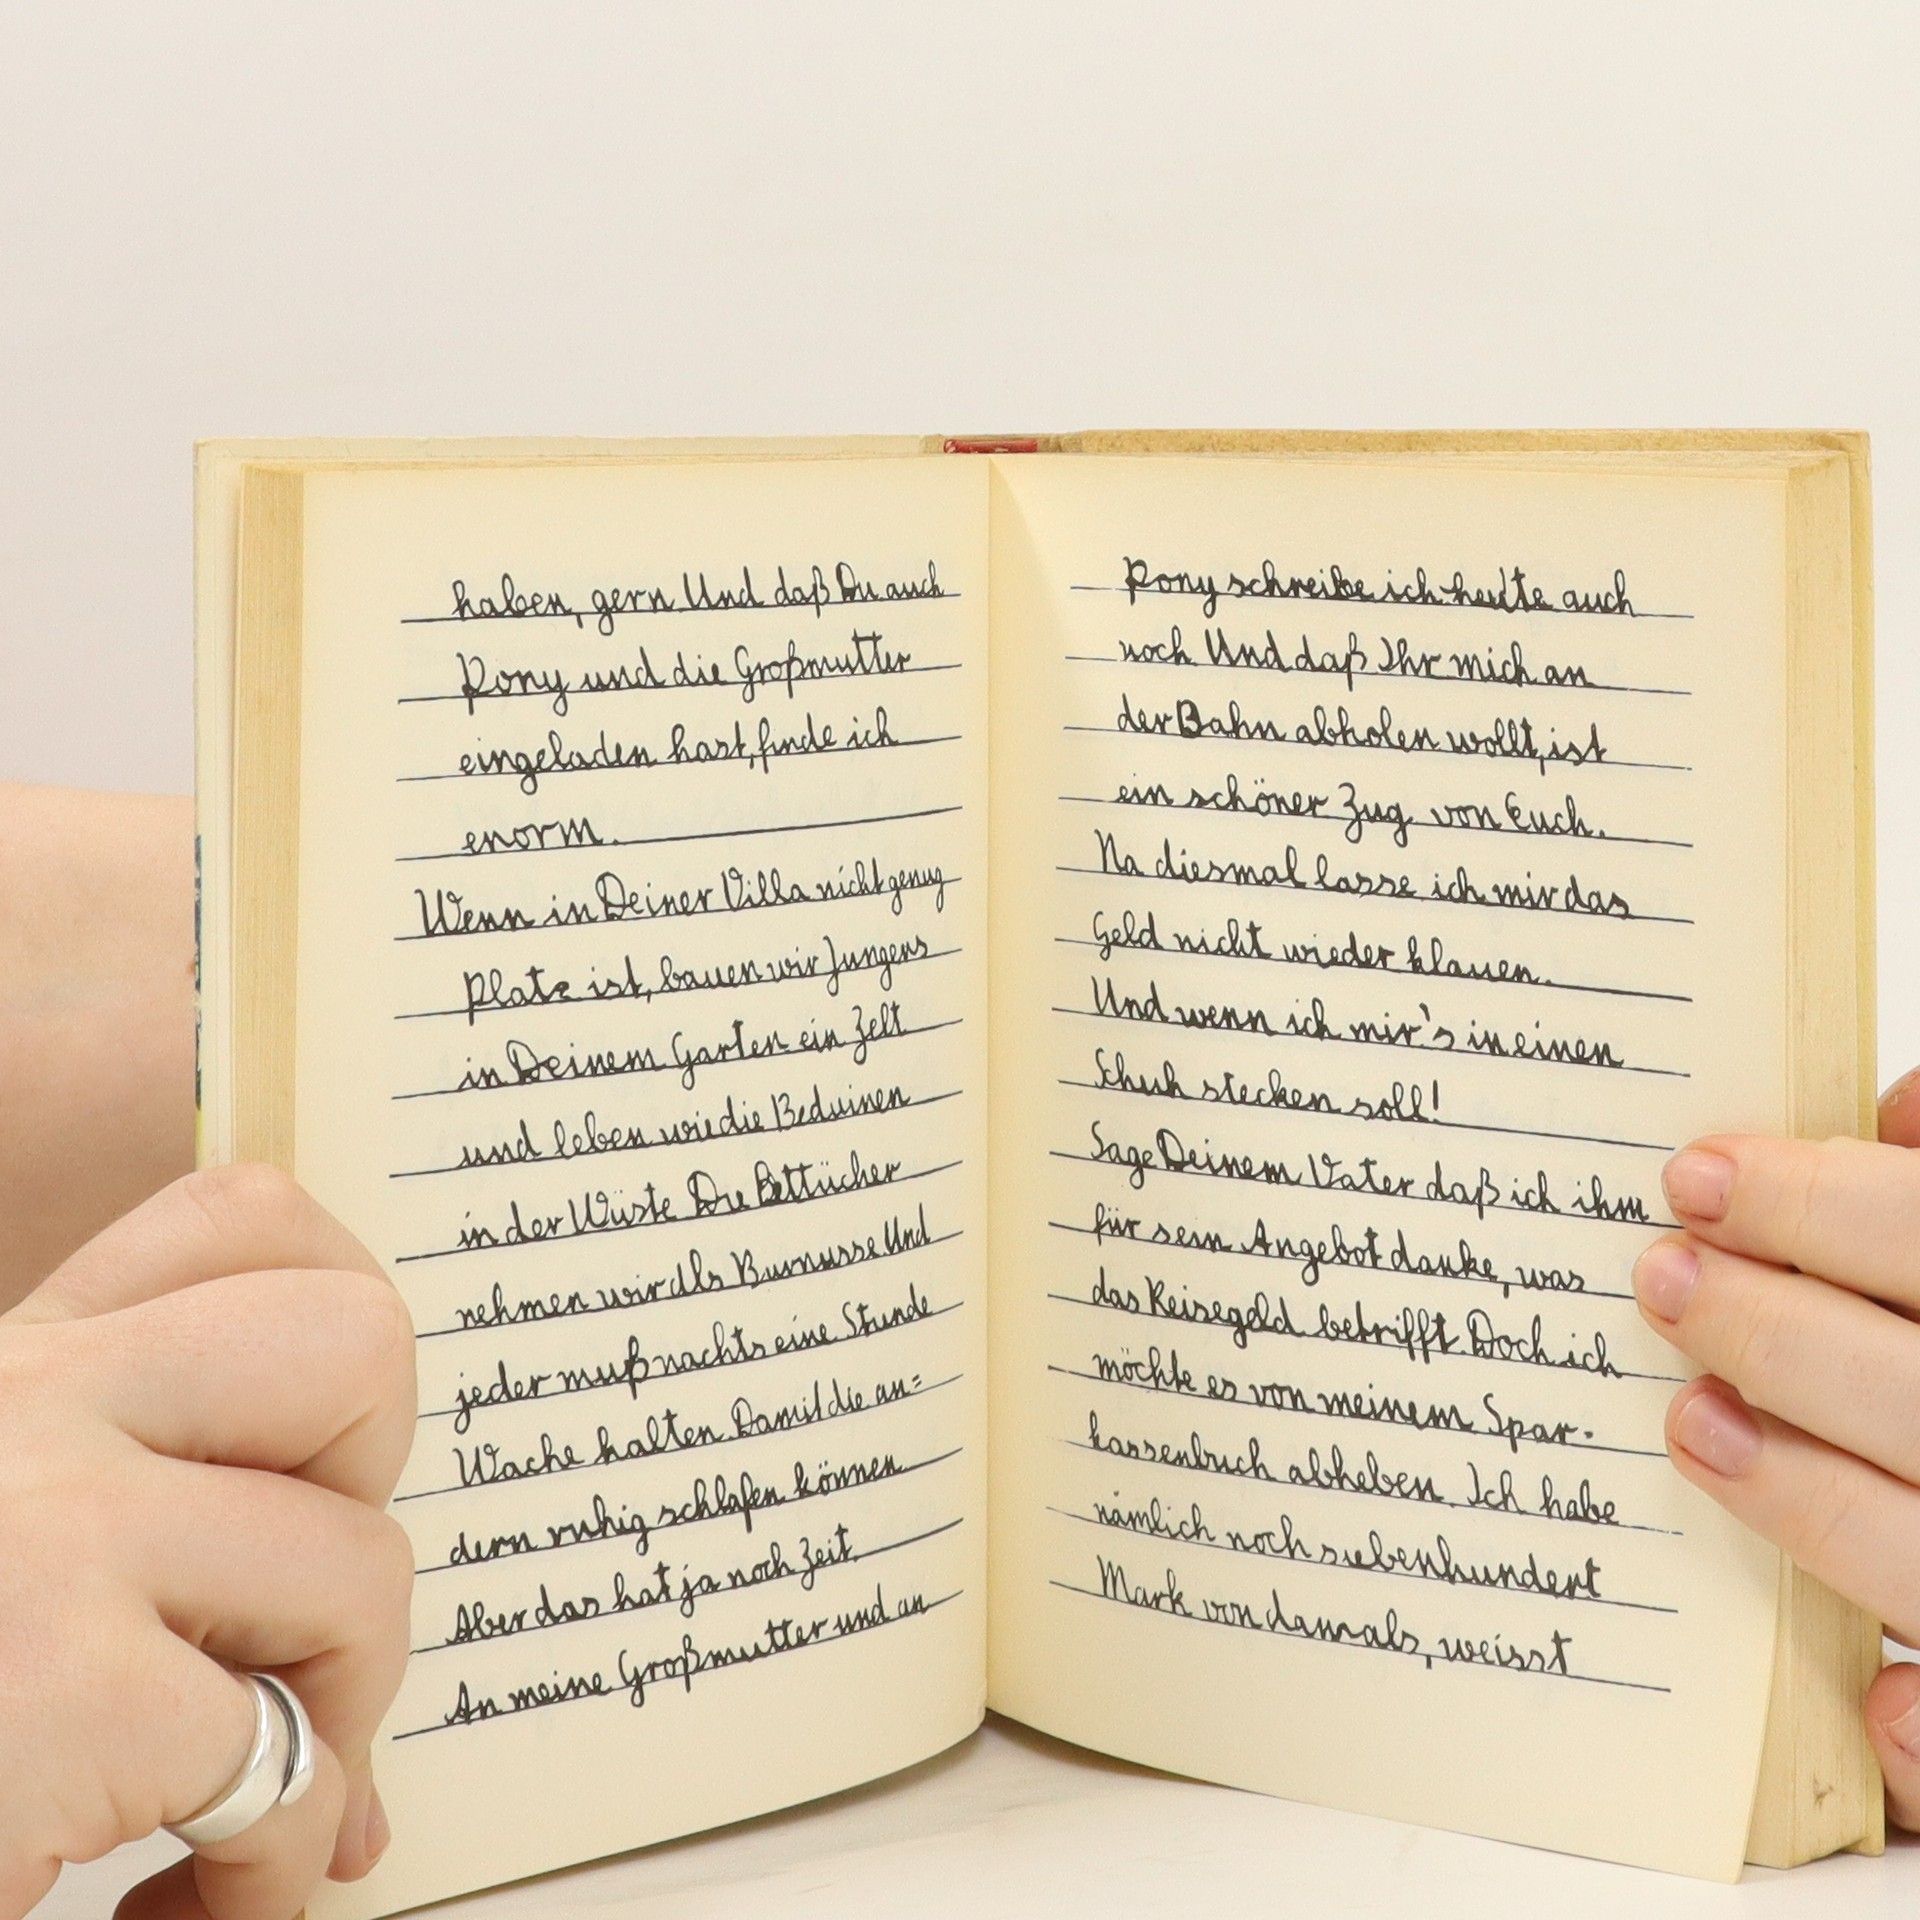 haben, gern Und daß Du auch
Pony und die Großmutter
eingeladen hast, finde ich
enorm.
Wenn in Deiner Villa nicht genug
Platz ist, bauen wir Jungens
in Deinem Garten ein Zelt
und leben wie die Beduinen
in der Wüste Die Bettücher
nehmen wir als Burnusse Und
jeder muß nachts eine Stunde
Wache halten Damit die an=
dern ruhig schlafen können
Aber das hat ja noch Zeit.
An meine Großmutter und an
Pony schreibe ich heute auch
noch Und daß Ihr mich an
der Bahn abholen wollt, ist
ein schöner Zug von Euch.
Na diesmal lasse ich mir das
Geld nicht wieder klauen.
Und wenn ich mir's in einen
Schuh stecken soll!
Sage Deinem Vater daß ich ihm
für sein Angebot danke, was
das Reisegeld betrifft. Doch ich
möchte es von meinem Spar-
kassenbuch abheben. Ich habe
nämlich noch siebenhundert
Mark von damals, weisst